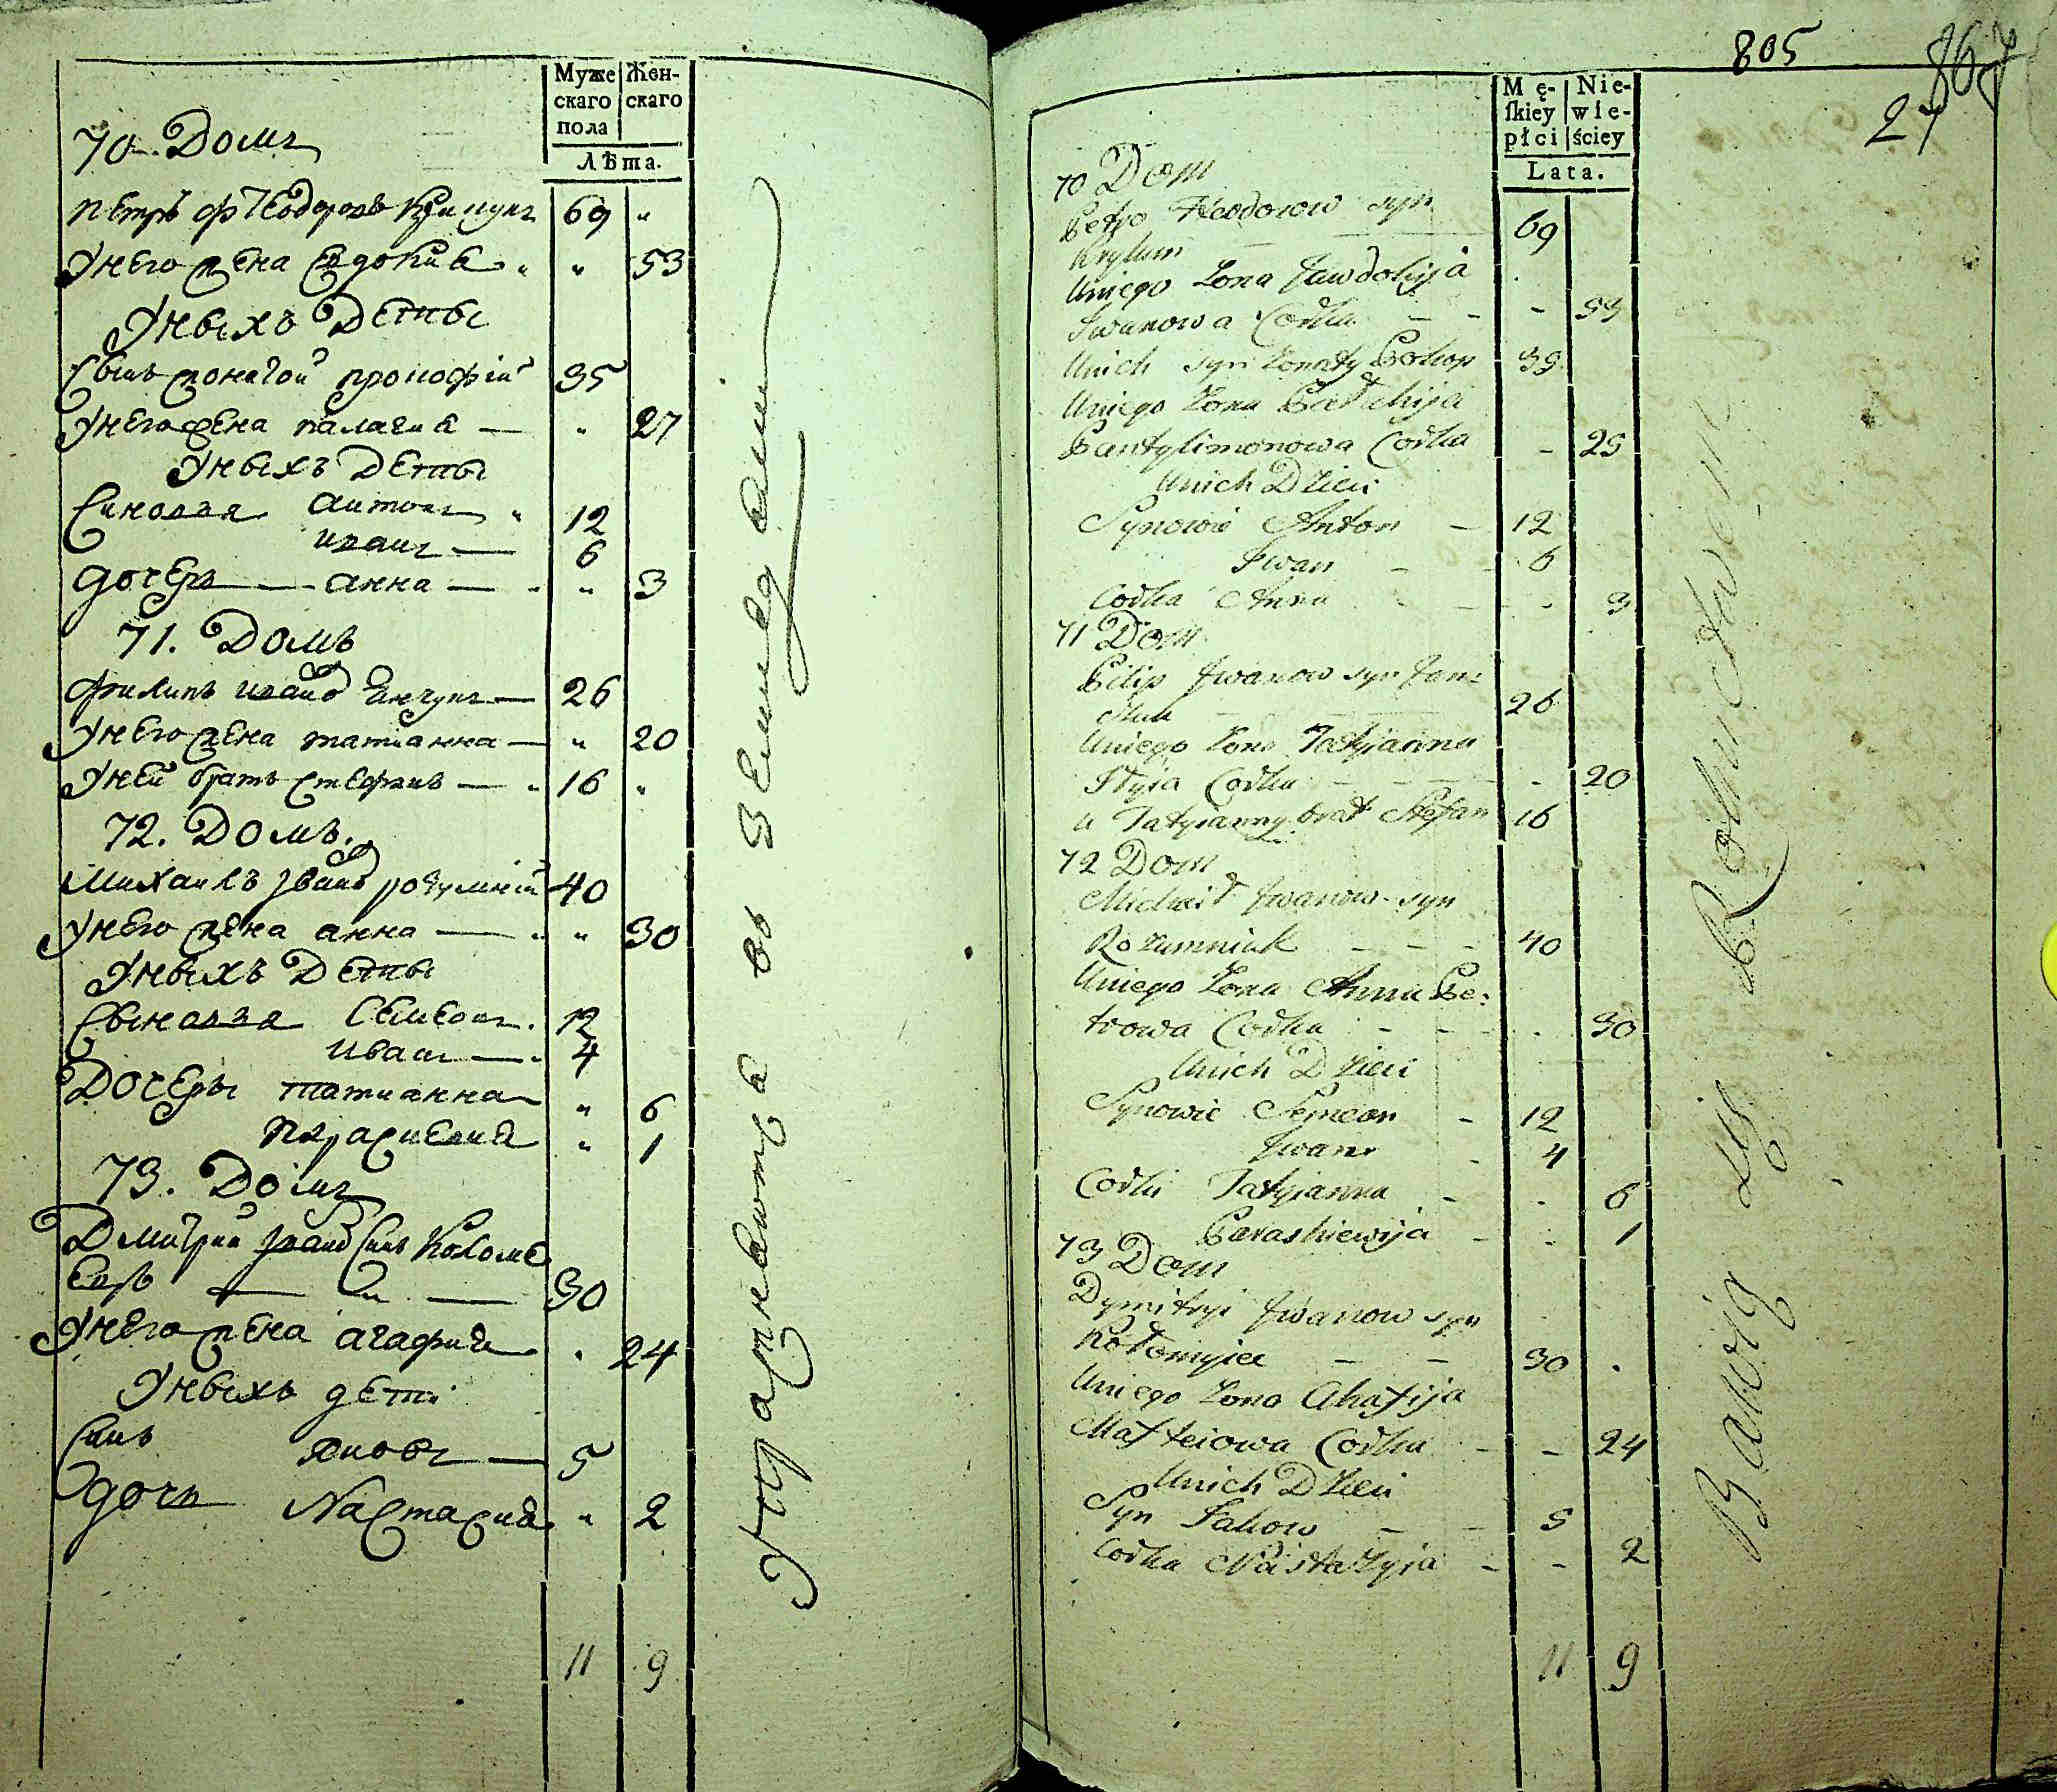 Муже Жен-
скаго скаго
пола
Лѣта.
70. Домъ
Петръ Фтеодоровъ 69 "
Унего жена Евдокиа " " 53
Уныхъ Деты
Сынъ жонатои прокофiи 35
Унего жена палагиа — " 27
Уныхъ Деты
Синовья Антонъ " 12
иванъ — 6
дочеръ — анна — " " 3
71. Домъ
Филипъ иванов — 26
Унего жена татианна — " 20
Уней братъ стефанъ — " 16 "
72. Домъ.
Михаилъ Иванов 40
Унего жена анна — " " 30
Уныхъ Деты
Сыновья Семеонъ. 12
иванъ — 4
Дочеры татианна " 6
параскевия " 1
73. Домъ
Дмитрий иванов синъ Коломе
ецъ — " — 30
Унего жена агафия . 24
Уныхъ дети
Синъ яковъ — 5
дочъ Настасия " 2
11 9
Упражняютца въ земледелии
805
867
27
Mę- Nie-
ſkiey wie-
płci ściey
Lata.
70 Dom
Petro Fteodorow syn
Krylum — 69
Uniego Zona Jawdokija
Iwanowa Corka - - - 53
Unich syn Zonaty Prokop 35
Uniego Zona Palahija
Pantylimonowa Corka - 25
Unich Dzieci
Synowie Anton - 12
Iwan - - 6
Corka Anna - - - 3
71 Dom
Pilip Iwanow syn Jan:
26
Uniego Zona Tatyjanna
Corka - - - - 20
u Tatyianny brat Stefan 16
72 Dom
Michaił Iwanow syn
Rozumniak - - - 40
Uniego Zona Anna Pe:
trowa Corka - - . 30
Unich Dzieci
Synowie Semeon - 12
Iwan - 4
Corki Tatyianna - - 6
Paraskiewija - - 1
73 Dom
Dymitryi Iwanow syn
Kołomyiec - - 30 .
Uniego Zona Ahafija
Mafteiowa Corka - - 24
Unich Dzieci
Syn Jakow - - 5
Corka Nastazyja - - 2
11 9
Bawią się Rolnictwem